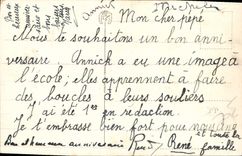 Annick
Mon cher pépé
Nous te souhaitons un bon anni-
versaire. Annick a eu une image à
l'école; elles apprennent à faire
des boucles à leurs souliers.
J'ai été 1er en rédaction.
Je t'embrasse bien fort pour
et toute la
Bon et heureux anniversaire René famille